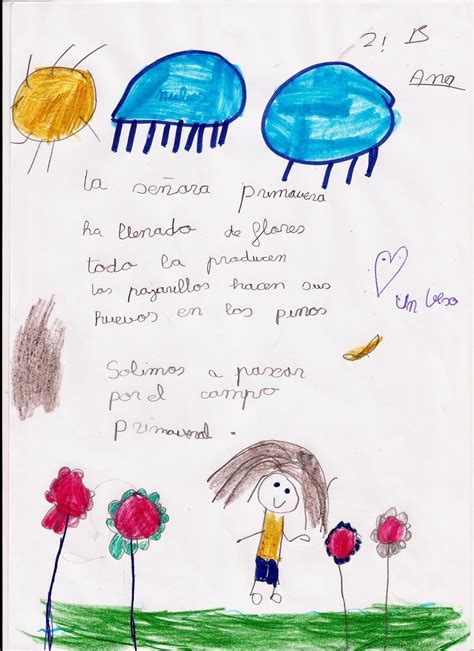 2! B
Ana
nube
La señora primavera
ha llenado de flores
todo la producen
los pajarillos hacen sus
huevos en los pinos
un beso
Salimos a pasear
por el campo
primaveral.